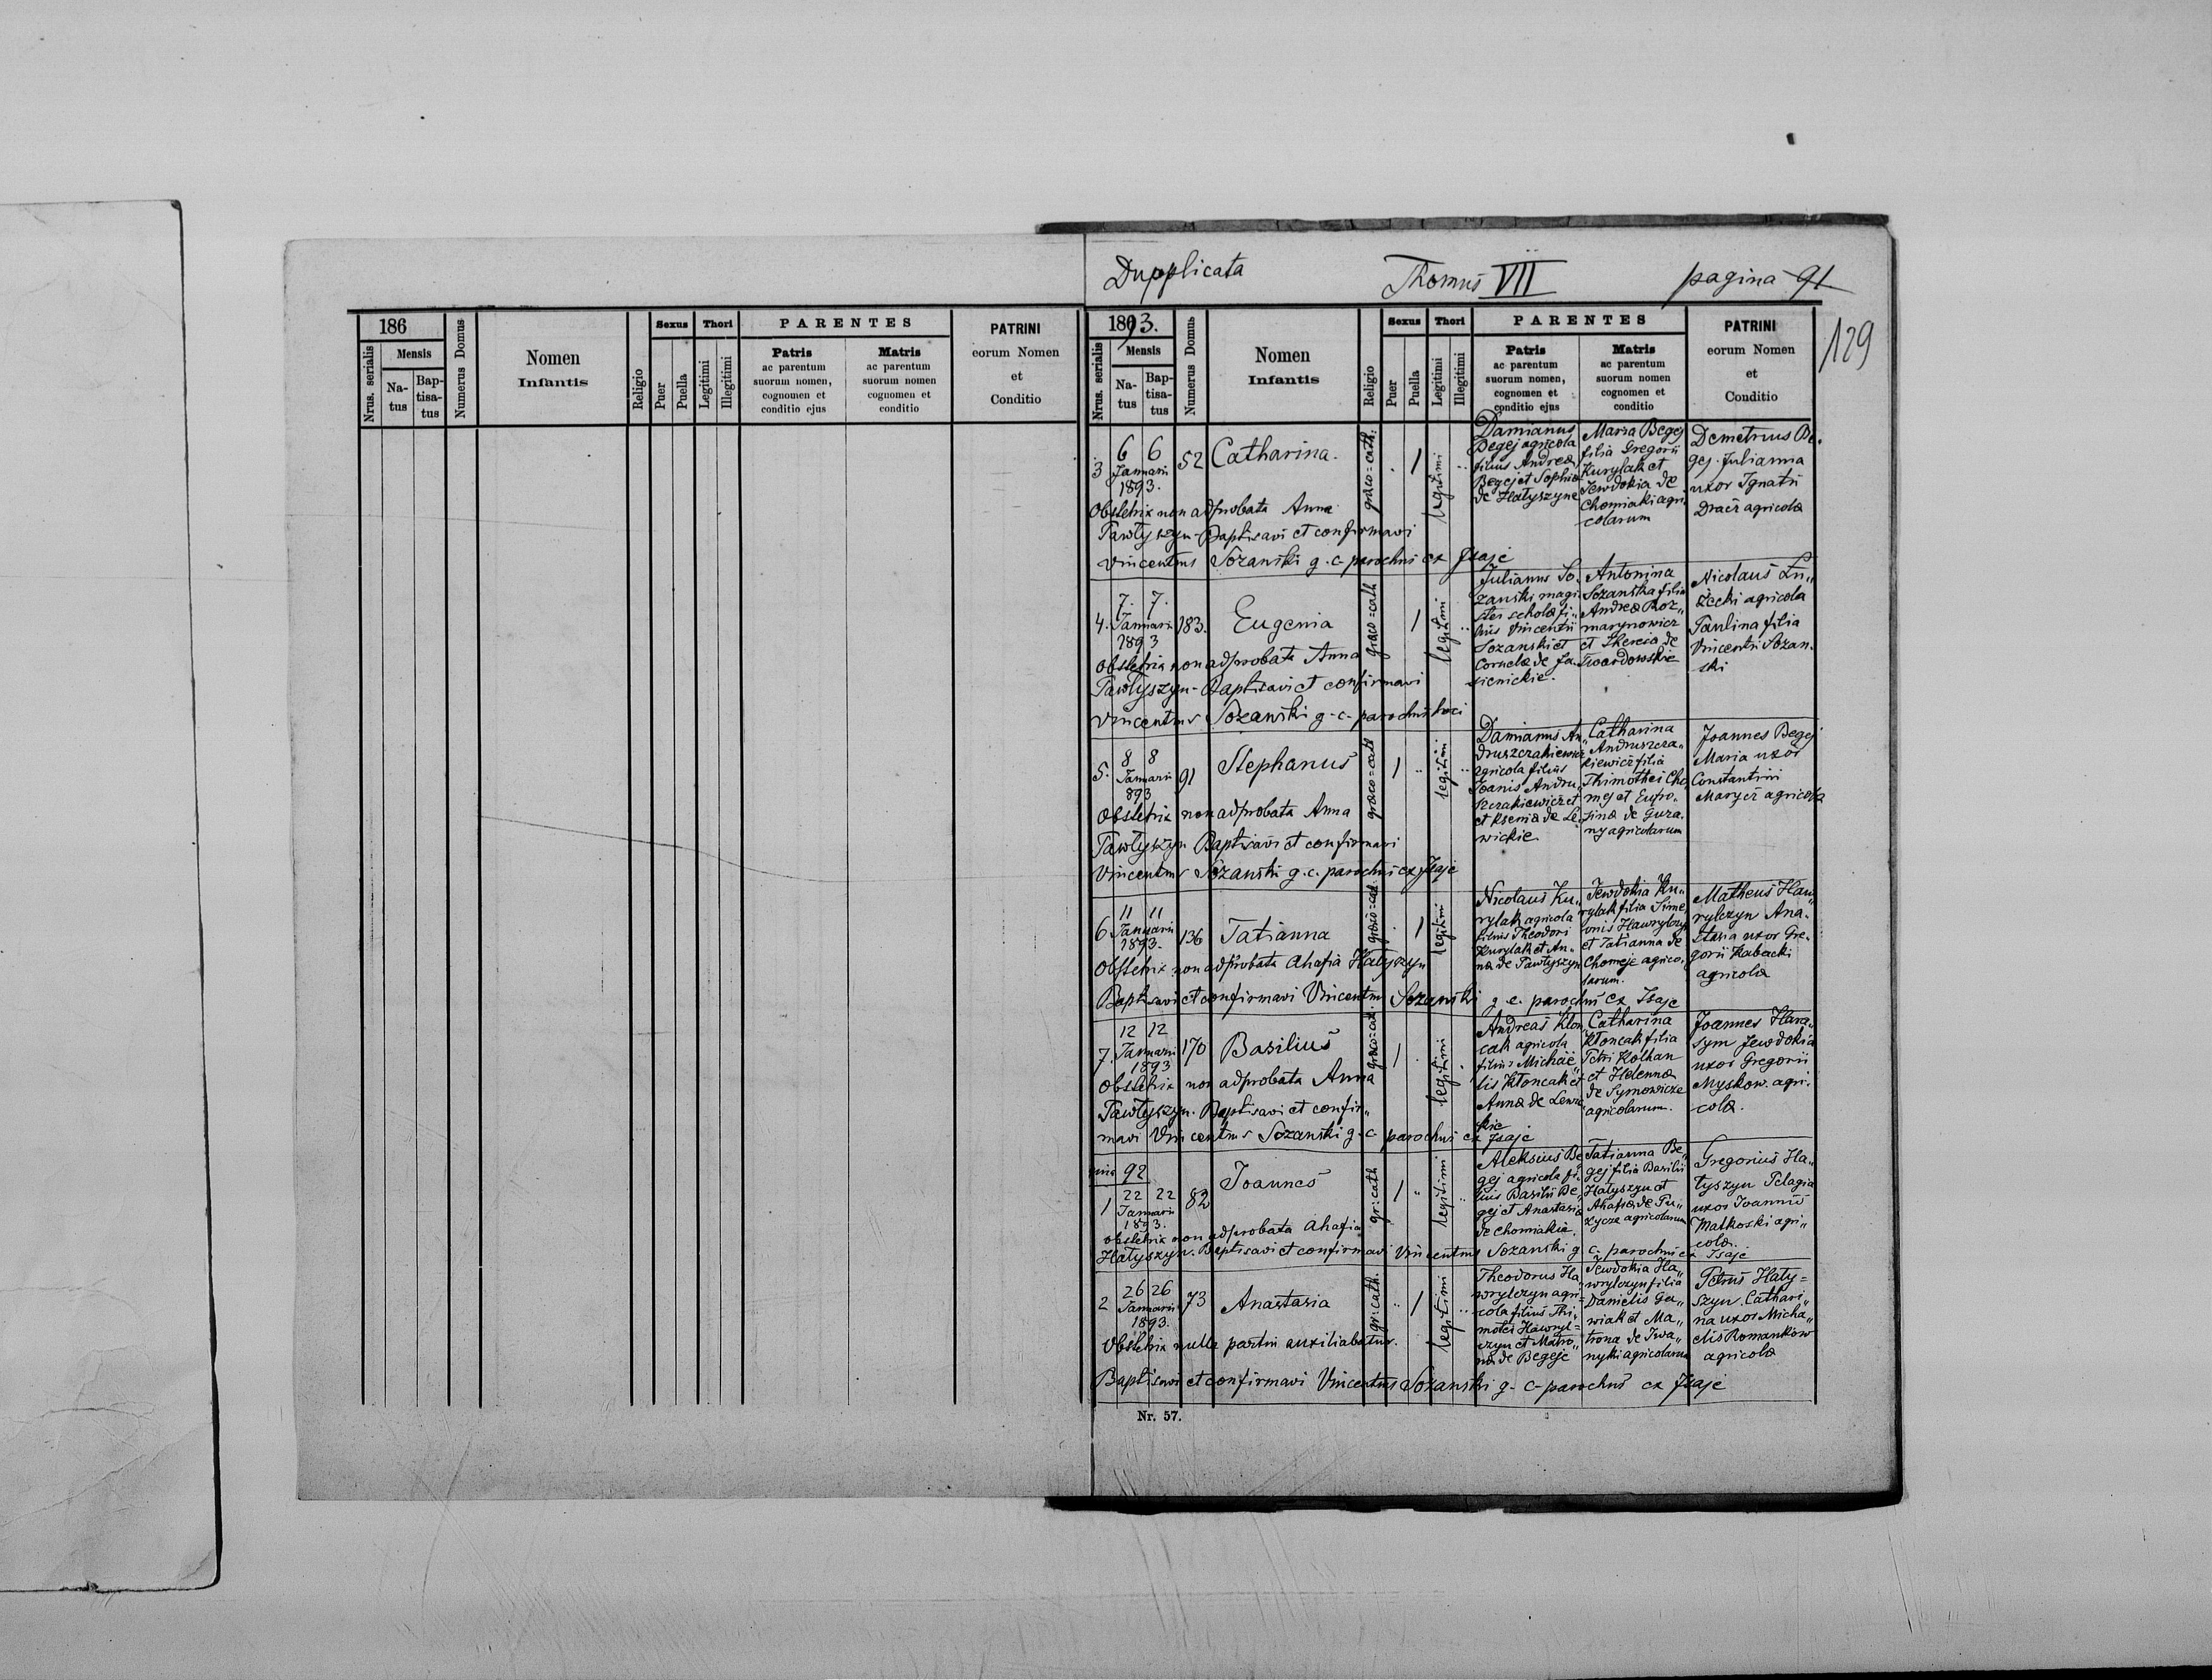 Dupplicata Thomus VII pagina 91
129
186
Nrus. serialis
Mensis
Na-
tus
Bap-
tisa-
tus
Numerus Domus
Nomen
Infantis
Religio
Sexus
Puer
Puella
Thori
Legitimi
Illegitimi
PARENTES
Patris
ac parentum
suorum nomen,
cognomen et
conditio ejus
Matris
ac parentum
suorum nomen
cognomen et
conditio
PATRINI
eorum Nomen
et
Conditio
1893.
Nrus. serialis
Mensis
Na-
tus
Bap-
tisa-
tus
Numerus Domus
Nomen
Infantis
Religio
Sexus
Puer
Puella
Thori
Legitimi
Illegitimi
PARENTES
Patris
ac parentum
suorum nomen,
cognomen et
conditio ejus
Matris
ac parentum
suorum nomen
cognomen et
conditio
PATRINI
eorum Nomen
et
Conditio
3 6 6 52 Catharina.
Januarii
1893.
graco=cath:
1
legitimi
Damianus
Begej agricola
filius Andreæ
Begej et Sophiæ
de Hatyszyne
Maria Begej
filia Gregorii
Kurylak et
Jewdokia de
Chomiaki agri-
colarum
Demetrius Be-
gej. Julianna
uxor Ignatii
agricola
Obstetrix non adprobata Anna
Pawłyszyn - Baptisavi et confirmavi
Vincentius Sozanski g. c. parochus ex Isaje
4. 7. 7. 183. Eugenia
Januarii
1893
graco=cath
1
legitimi
Julianus So-
zanski magi-
ster scholæ fi„
lius Vincentii
Sozanski et
Corneliæ de Ja-
sienickie.
Antonina
Sozanska filia
Andreæ Roz„
marynowicz
et Theresiæ de
Twardowskie
Nicolaus
agricola
Paulina filia
Vincentii Sozan-
ski
Obstetrix non adprobata Anna
Pawłyszyn - Baptisavi et confirmavi
Vincentius Sozanski g. c. parochus loci
5. 8 8 91 Stephanus
Januarii
893
graco=cath
1
legitimi
Damianus An„
druszczakiewicz
agricola filius
Joanis Andru„
szczakiewicz et
et Ksenia de Le-
wickie
Catharina
Andruszcza„
kiewicz filia
Thimothei Cho„
mej et Eufro-
sina de
agricolarum
Joannes Begej
Maria uxor
Constantini
agricola
Obstetrix non adprobata Anna
Pawłyszyn Baptisavi et confirmavi
Vincentius Sozanski g. c. parochus ex Isaje
6 11 11 136 Tatianna
Januarii
1893.
graco=cat
1
legitimi
Nicolaus Ku„
rylak agricola
filius Theodori
Kurylak et An„
næ de Pawłyszyn
Jewdokia Ku„
rylak filia Sime„
onis Hawrylczyn
et Tatianna de
Chomeje agrico-
larum.
Matheus Haw„
rylczyn Ana-
stasia uxor Gre-
gorii Kabacki
agricola
Obstetrix non adprobata Ahafia Hatyszyn
Baptisavi et confirmavi Vincentius Sozanski g. c. parochus ex Isaje
7. 12 12 170 Basilius
Januarii
1893
graco=cat.
1
legitimi
Andreas Kłon„
cak agricola
filius Michae„
lis Kłoncak et
Anna de Lewic„
kie
Catharina
Kłoncak filia
Petri Kolkan
et Helenna
de Symowicze
agricolarum.
Joannes Hara„
sym Jewdokia
uxor Gregorii
Myskow. agri-
cola.
Obstetrix non adprobata Anna
Pawłyszyn. Baptisavi et confir„
mavi Vincentius Sozanski g. c parochus ex Isaje
92
1 22 22 82 Joannes
Januarii
1893.
gr: cath
1
legitimi
Aleksius Be„
gej agricola fi-
lius Basilii Be„
gej et Anastasia
de Chomiakie.
Tatianna Be„
gej filia Basilii
Hatyszyn et
Ahafia de Pu-
zycze agricolarum
Gregorius Ha„
tyszyn Pelagia
uxor Joannis
Matkoski agri„
cola.
obstetrix non adprobata Ahafia
Hatyszyn. Baptisavi et confirmavi Vincentius Sozanski g c. parochus ex Isaje
2 26 26 73 Anastasia
Januarii
1893.
gr: cath.
1
legitimi
Theodorus Ha„
wrylczyn agri-
cola filius Thi-
motei Hawryl=
czyn et Matro„
na de Begeje
Jewdokia Ha„
wrylczyn filia
Danielis Ga„
wiak et Ma„
trona de Iwa„
nyki agricolarum
Petrus Haty=
szyn. Cathari„
na uxor Micha„
elis Romankow
agricola
Obstetrix nulla partui auxiliabatur.
Baptisavi et confirmavi Vincentius Sozanski g. c. parochus ex Isaje
Nr. 57.